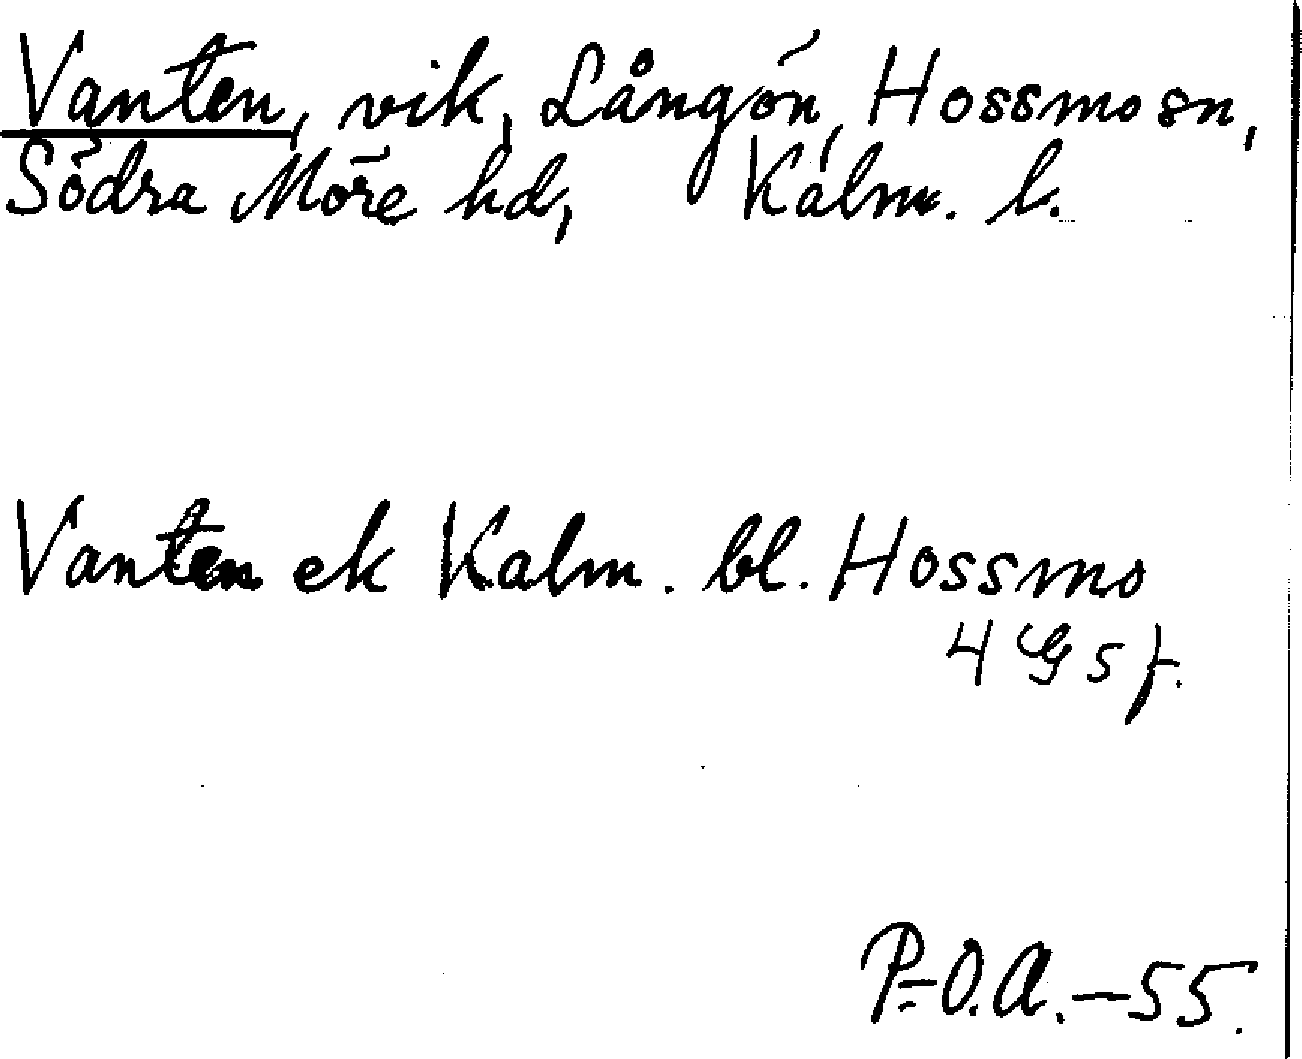 Vanten, vik, Långön, Hossmo sn,
Södra Möre hd, Kalm. l.
Vanten ek Kalm. bl. Hossmo
4 g 5 f.
P.-O.A.-55.